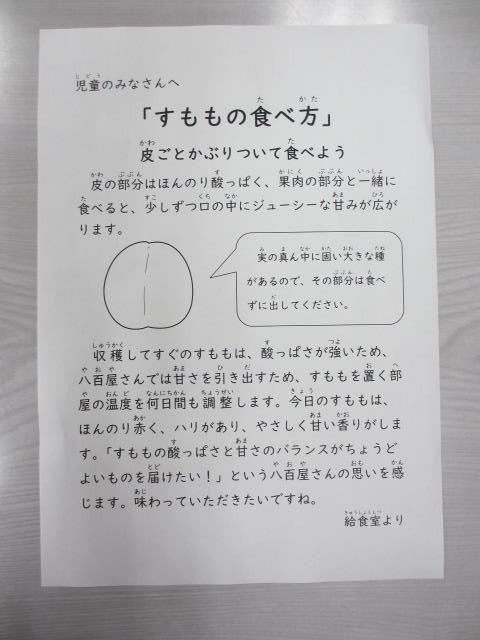 児童のみなさんへ
「すももの食べ方」
皮ごとかぶりついて食べよう
皮の部分はほんのり酸っぱく、果肉の部分と一緒に
食べると、少しずつ口の中にジューシーな甘みが広が
ります。
実の真ん中に固い大きな種
があるので、その部分は食べ
ずに出してください。
収穫してすぐのすももは、酸っぱさが強いため、
八百屋さんでは甘さを引き出すため、すももを置く部
屋の温度を何日間も調整します。今日のすももは、
ほんのり赤く、ハリがあり、やさしく甘い香りがしま
す。「すももの酸っぱさと甘さのバランスがちょうど
よいものを届けたい!」という八百屋さんの思いを感
じます。味わっていただきたいですね。
給食室より